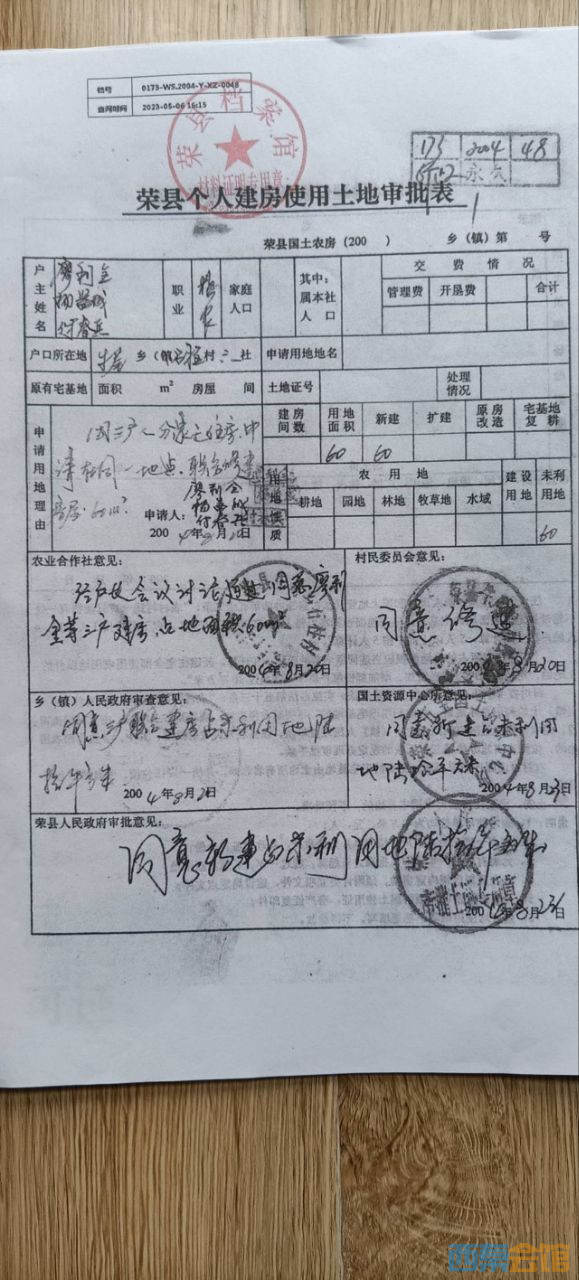 档号 0173-WS.2004-Y-XZ-0048
查阅时间 2023-05-06 16:15
荣县档案馆
材料证明专用章
173 2004 48
永久
荣县个人建房使用土地审批表
荣县国土农房(200 ) 乡(镇)第 号
户主姓名 廖利全 职业 务农 家庭人口 其中:属本社人口 交费情况
管理费 开垦费 合计
户口所在地 乡(镇) 村 社 申请用地地名
原有宅基地 面积 m² 房屋 间 土地证号 处理情况
申请用地理由
因三户人分家无住房.申
请在同一地点.联合修建
住房.60m²
申请人: 廖利全
2004年8月20日
建房间数 用地面积 新建 扩建 原房改造 宅基地复耕
60 60
用地性质 农用地 建设用地 未利用地
耕地 园地 林地 牧草地 水域
60
农业合作社意见:
经户代会议讨论通过同意廖利
全等三户建房占地面积60m²
2004年8月20日
村民委员会意见:
同意修建.
2004年8月20日
乡(镇)人民政府审查意见:
同意三户联合建房占未利用地陆
拾平方米 2004年8月21日
国土资源中心所意见:
同意新建占未利用
地陆拾平方米
2004年8月23日
荣县人民政府审批意见:
同意新建占未利用地陆拾平方米
2004年8月23日
西菜会馆